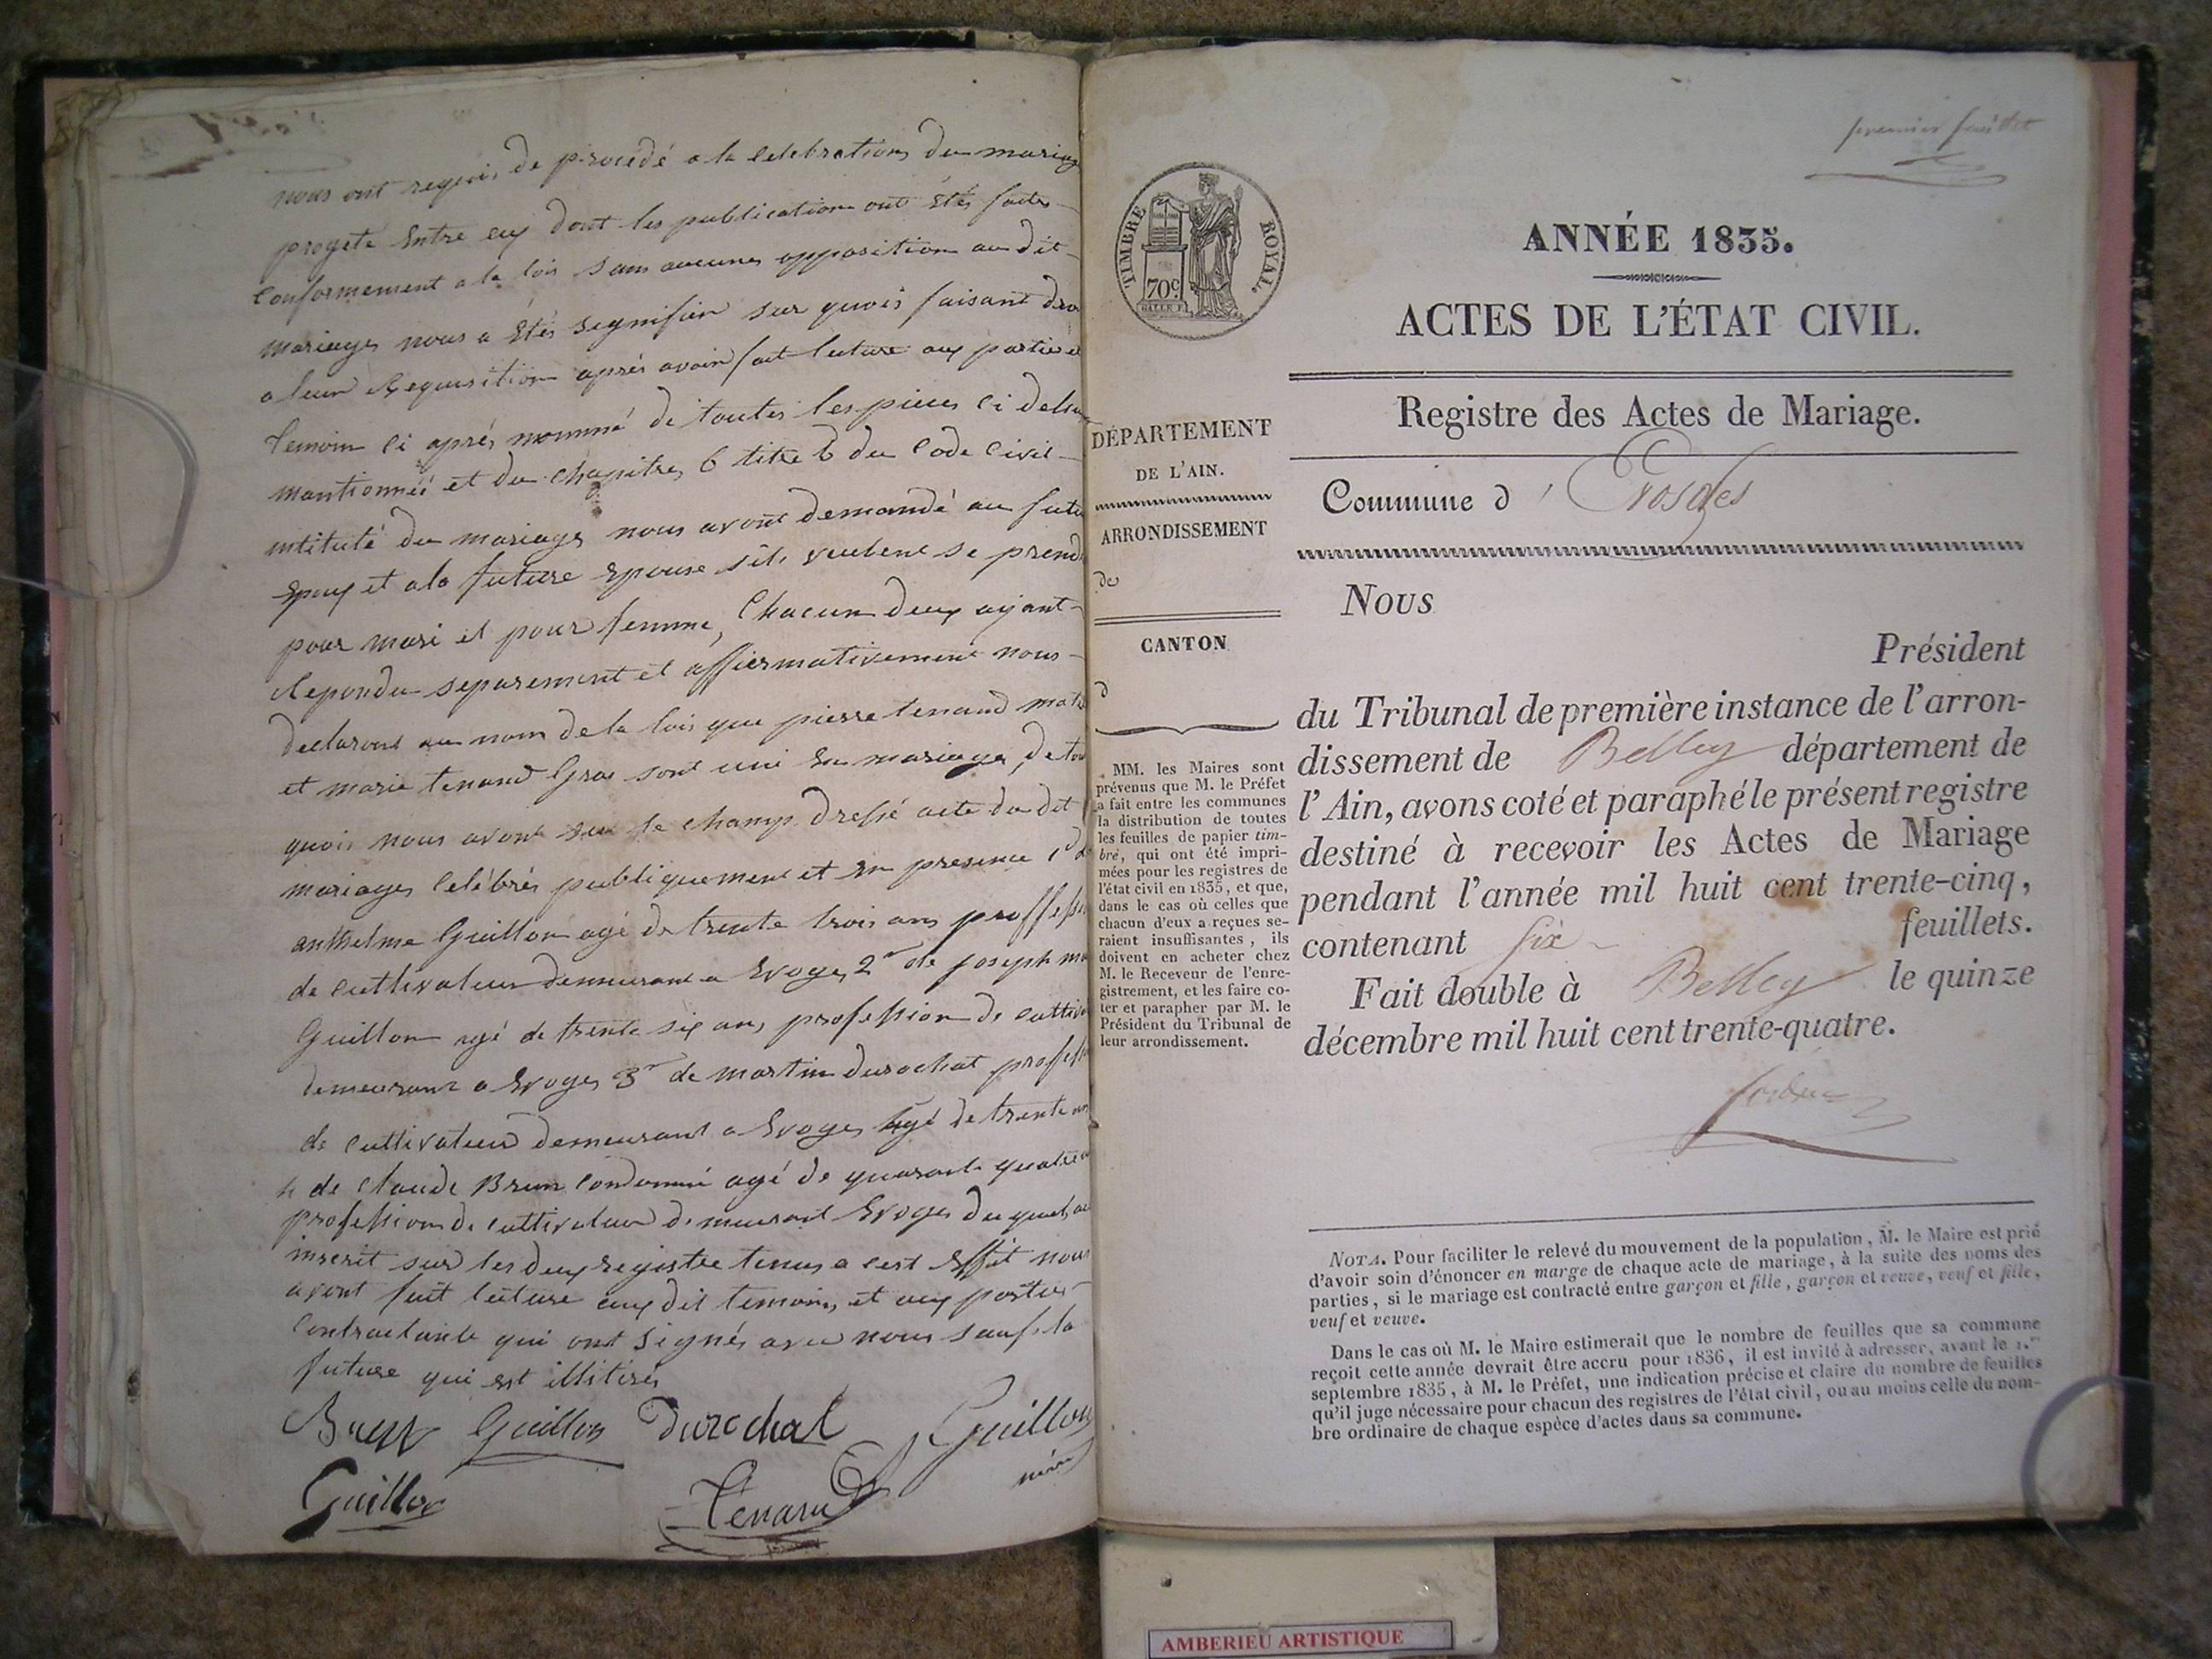 nous ont requis de procedé a la celebration du mariag
progeté Entre eux dont les publication ont étés faites
conformement a la lois sans aucunes opposition au dit
mariages nous a étés signifier sur quois faisant dro
a leur Requisition après avoir fait lecture aux parties et
temoin ci après nommé de toutes les pieces ci dessu
mantionnéé et du chapitres 6 titre 6 du Code Civil
intitulé du mariages nous avont demandé au futu
Epoux et a la future epouse sils veulent se prend
pour mari et pour femme, Chacun deux ayant
Repondu separement et affiermativement nous
declarons au nom de la lois que pierre tenand
et marie tenand Gros sont uni En mariage, de tou
quois nous avont sur le champ dressé acte du dit
mariages Celébrés publiquement et en presence 1r d
anthelme Guillon agé de trente trois ans proffess
de cultivateur demeurant a Evoges 2r de joseph
Guillon agé de trente six ans, profession de cultiv
demeurant a Evoges 3r de martin durochat profess
de cultivateur demeurant a Evoges agé de trente an
4 de Claude Brun Condamné agé de quarante quatre
profession de cultivateur demeurant Evoges du quel
inscrit sur les deux registre tenus a cest Effet nous
avont fait lecture aux dit temoins et aux parties
Contractante qui ont signés avec nous sauf la
future qui est illitirés
Guillon Durochat Guillon
Guillon Tenand
premier feuillet
TIMBRE ROYAL.
70c.
ANNÉE 1835.
ACTES DE L'ÉTAT CIVIL.
Registre des Actes de Mariage.
DÉPARTEMENT
DE L'AIN.
ARRONDISSEMENT
de
CANTON
d
MM. les Maires sont
prévenus que M. le Préfet
a fait entre les communes
la distribution de toutes
les feuilles de papier tim-
bré, qui ont été impri-
mées pour les registres de
l'état civil en 1835, et que,
dans le cas où celles que
chacun d'eux a reçues se-
raient insuffisantes, ils
doivent en acheter chez
M. le Receveur de l'enre-
gistrement, et les faire co-
ter et parapher par M. le
Président du Tribunal de
leur arrondissement.
Commune d' Evosges
Nous
Président
du Tribunal de première instance de l'arron-
dissement de Belley département de
l'Ain, avons coté et paraphé le présent registre
destiné à recevoir les Actes de Mariage
pendant l'année mil huit cent trente-cinq,
contenant six feuillets.
Fait double à Belley le quinze
décembre mil huit cent trente-quatre.
NOTA. Pour faciliter le relevé du mouvement de la population, M. le Maire est prié
d'avoir soin d'énoncer en marge de chaque acte de mariage, à la suite des noms des
parties, si le mariage est contracté entre garçon et fille, garçon et veuve, veuf et fille,
veuf et veuve.
Dans le cas où M. le Maire estimerait que le nombre de feuilles que sa commune
reçoit cette année devrait être accru pour 1836, il est invité à adresser, avant le 1.er
septembre 1835, à M. le Préfet, une indication précise et claire du nombre de feuilles
qu'il juge nécessaire pour chacun des registres de l'état civil, ou au moins celle du nom-
bre ordinaire de chaque espèce d'actes dans sa commune.
AMBERIEU ARTISTIQUE